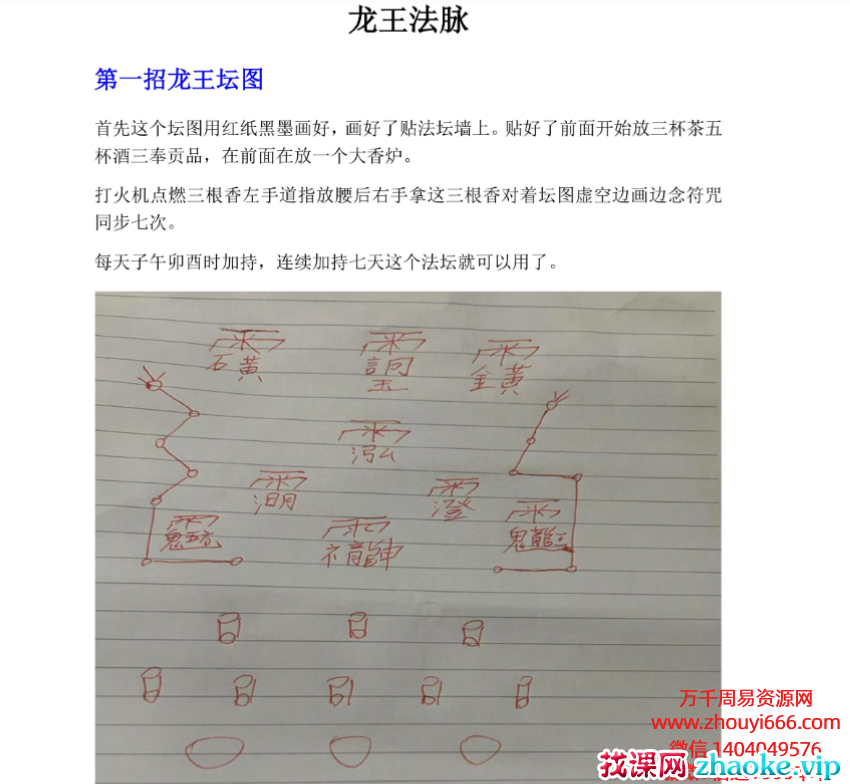 龙王法脉
第一招龙王坛图
首先这个坛图用红纸黑墨画好，画好了贴法坛墙上。贴好了前面开始放三杯茶五
杯酒三奉贡品，在前面在放一个大香炉。
打火机点燃三根香左手道指放腰后右手拿这三根香对着坛图虚空边画边念符咒
同步七次。
每天子午卯酉时加持，连续加持七天这个法坛就可以用了。
石黄
金黄
泓
澄
万千周易资源网
www.zhouyi666.com
微信 1404049576
找课网zhaoke.vip